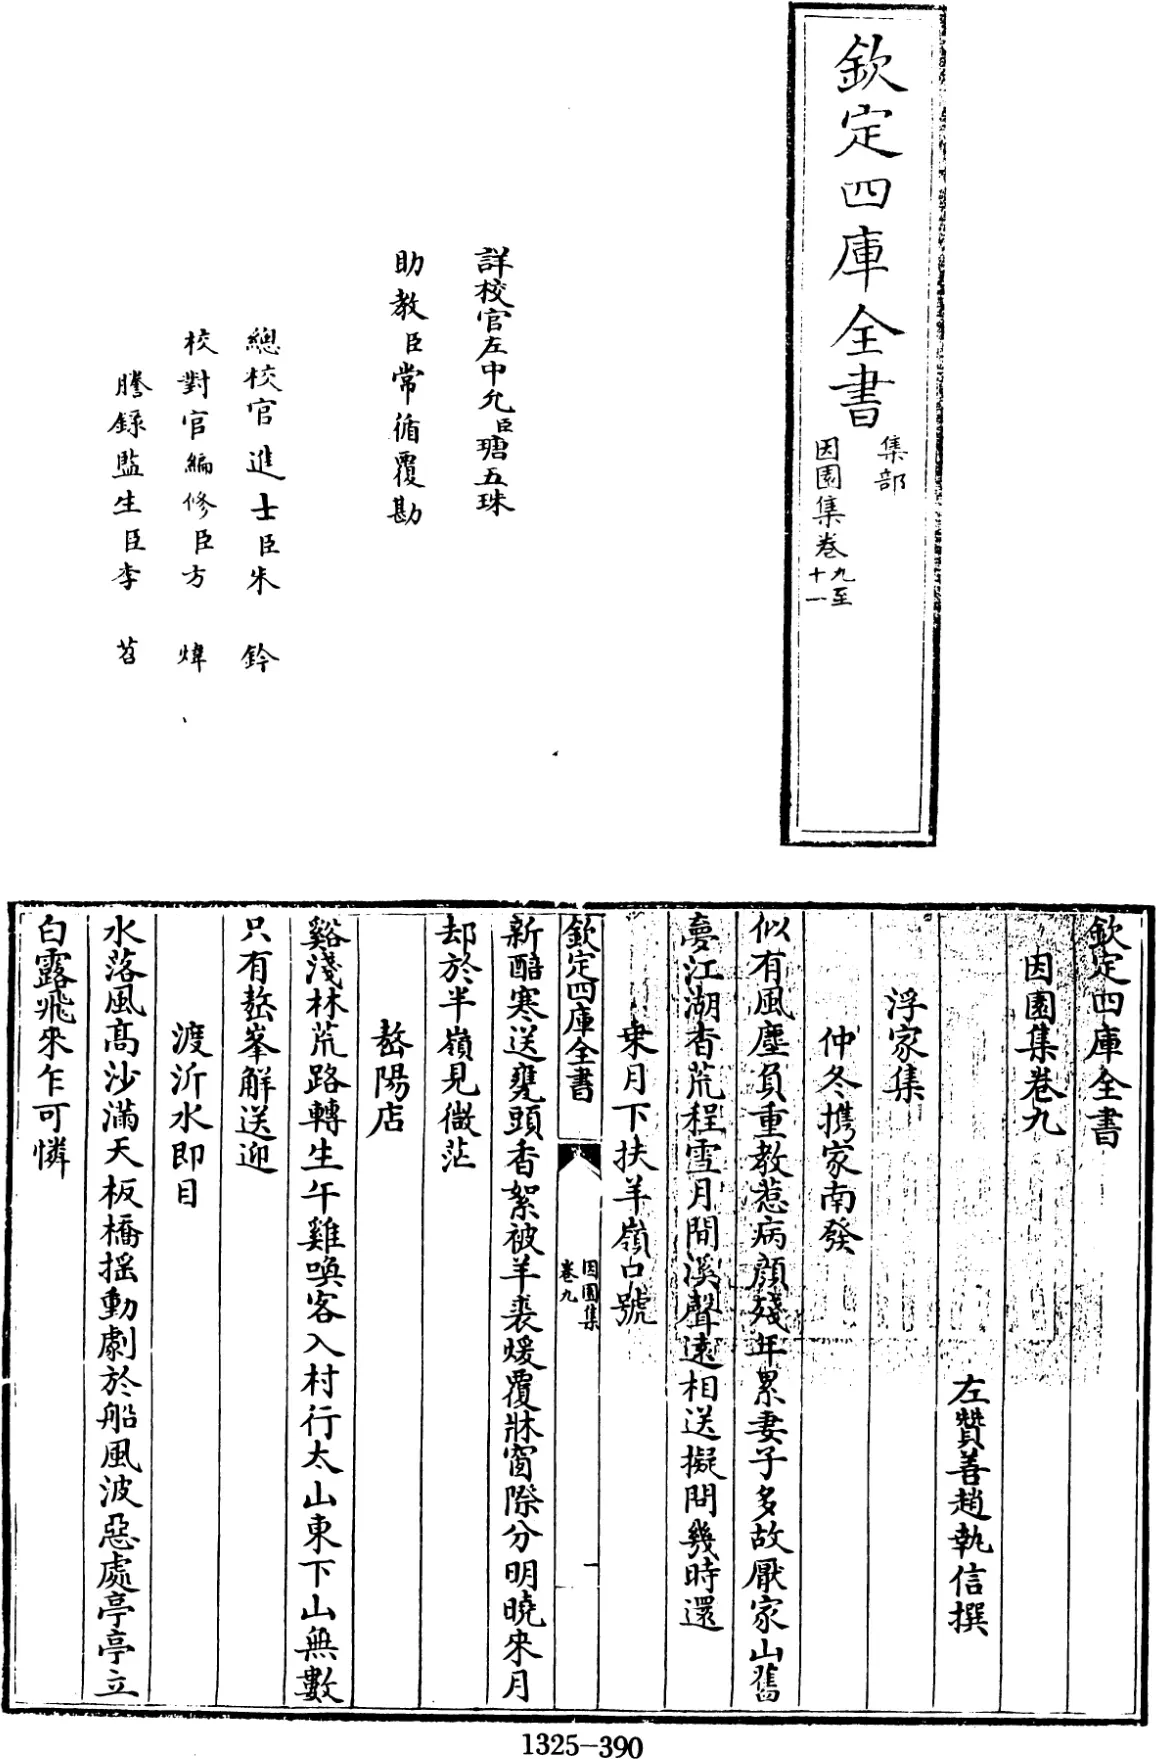 欽定四庫全書
集部
因園集卷九至
十一
詳校官左中允臣瑭五珠
助教臣常循覆勘
總校官進士臣朱鈐
校對官編修臣方煒
謄錄監生臣李苕
欽定四庫全書
因園集卷九
左贊善趙執信撰
浮家集
仲冬攜家南發
似有風塵負重教惹病顏殘年累妻子多故厭家山舊
夢江湖杳荒程雪月間溪聲遠相送擬問幾時還
乗月下扶羊嶺口號
欽定四庫全書
因園集
卷九
一
新醅寒送甕頭香絮被羊裘煖覆牀窗際分明曉来月
却於半嶺見微茫
嶅陽店
谿淺林荒路轉生午雞喚客入村行太山東下山無數
只有嶅峯解送迎
渡沂水即目
水落風髙沙滿天板橋揺動劇於船風波惡處亭亭立
白露飛來乍可憐
1325-390